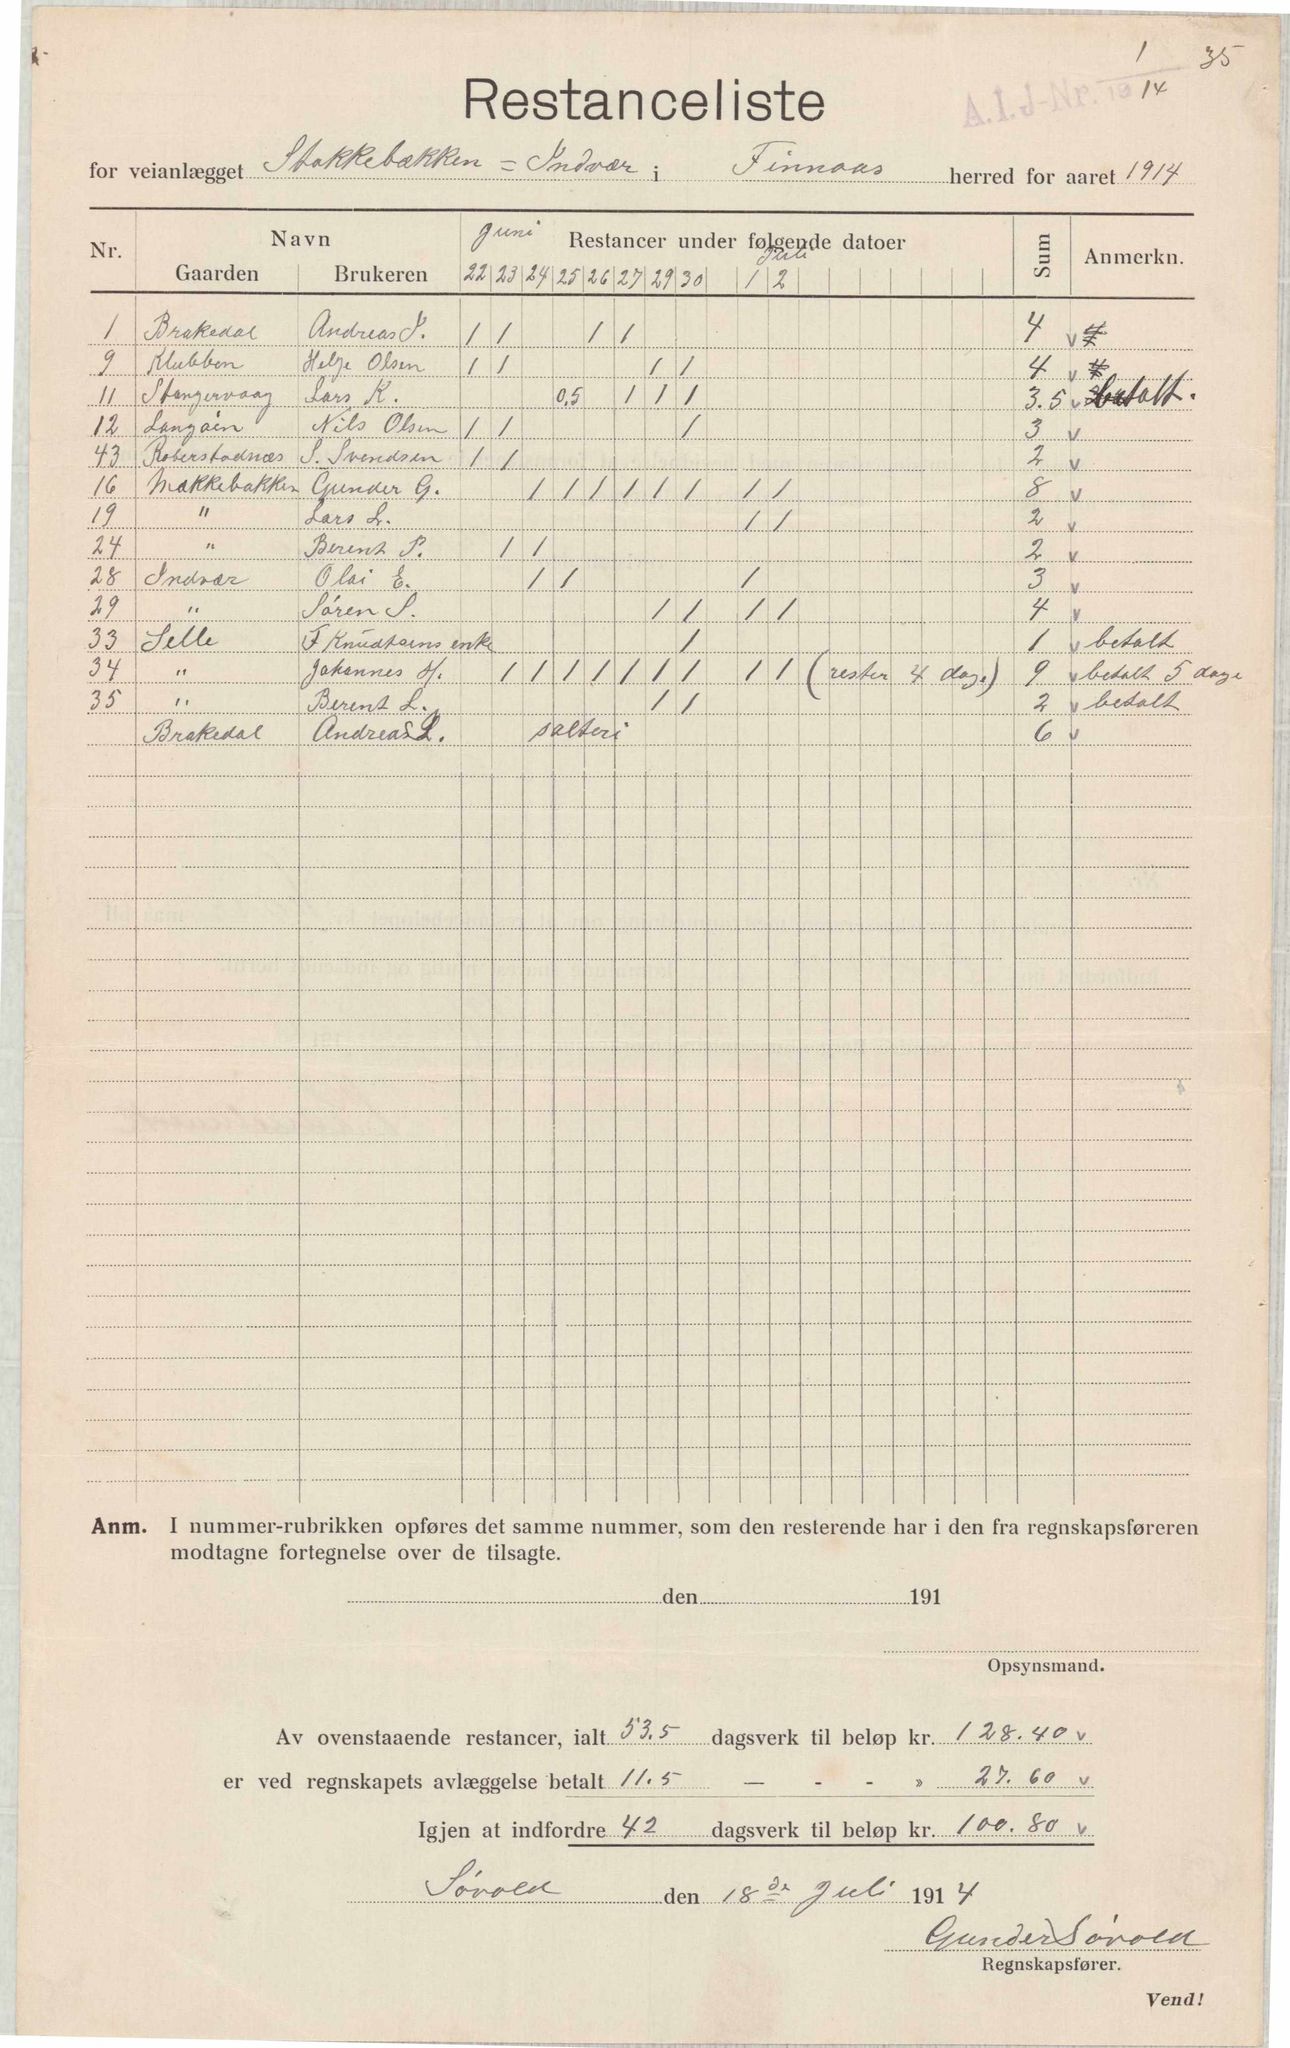 1 35
A.I.J-Nr. 19 14
Restanceliste
for veianlægget Stokkebækken = Indvær i Finnaas herred for aaret 1914
Nr. Navn Juni Restancer under følgende datoer Sum Anmerkn.
Gaarden Brukeren 22 23 24 25 26 27 29 30 Juli 1 2
1 Brakedal Andreas J. / / / / 4 v
9 Klubben Helje Olsen / / / / 4 v
11 Stangervaag Lars K. 0,5 / / / 3.5 v betalt.
12 Langöen Nils Olsen / / / 3 v
43 Roberstadnæs S. Svendsen / / 2 v
16 Mækkebakken Gunder G. / / / / / / / / 8 v
19 " Lars L. / / 2 v
24 " Berent P. / / 2 v
28 Indvær Olai E. / / / 3 v
29 " Søren S. / / / / 4 v
33 Selle F Knudtsens enke / 1 v betalt
34 " Johannes H. / / / / / / / / / (rester 4 dage) 9 v betalt 5 dage
35 " Berent L. / / 2 v betalt
Brakedal Andreas L. salteri 6 v
Anm. I nummer-rubrikken opføres det samme nummer, som den resterende har i den fra regnskapsføreren
modtagne fortegnelse over de tilsagte.
den 191
Opsynsmand.
Av ovenstaaende restancer, ialt 53.5 dagsverk til beløp kr. 128.40 v
er ved regnskapets avlæggelse betalt 11.5 — - - » 27.60 v
Igjen at indfordre 42 dagsverk til beløp kr. 100.80 v
Søvold den 18de Juli 1914
Gunder Søvold
Regnskapsfører.
Vend!